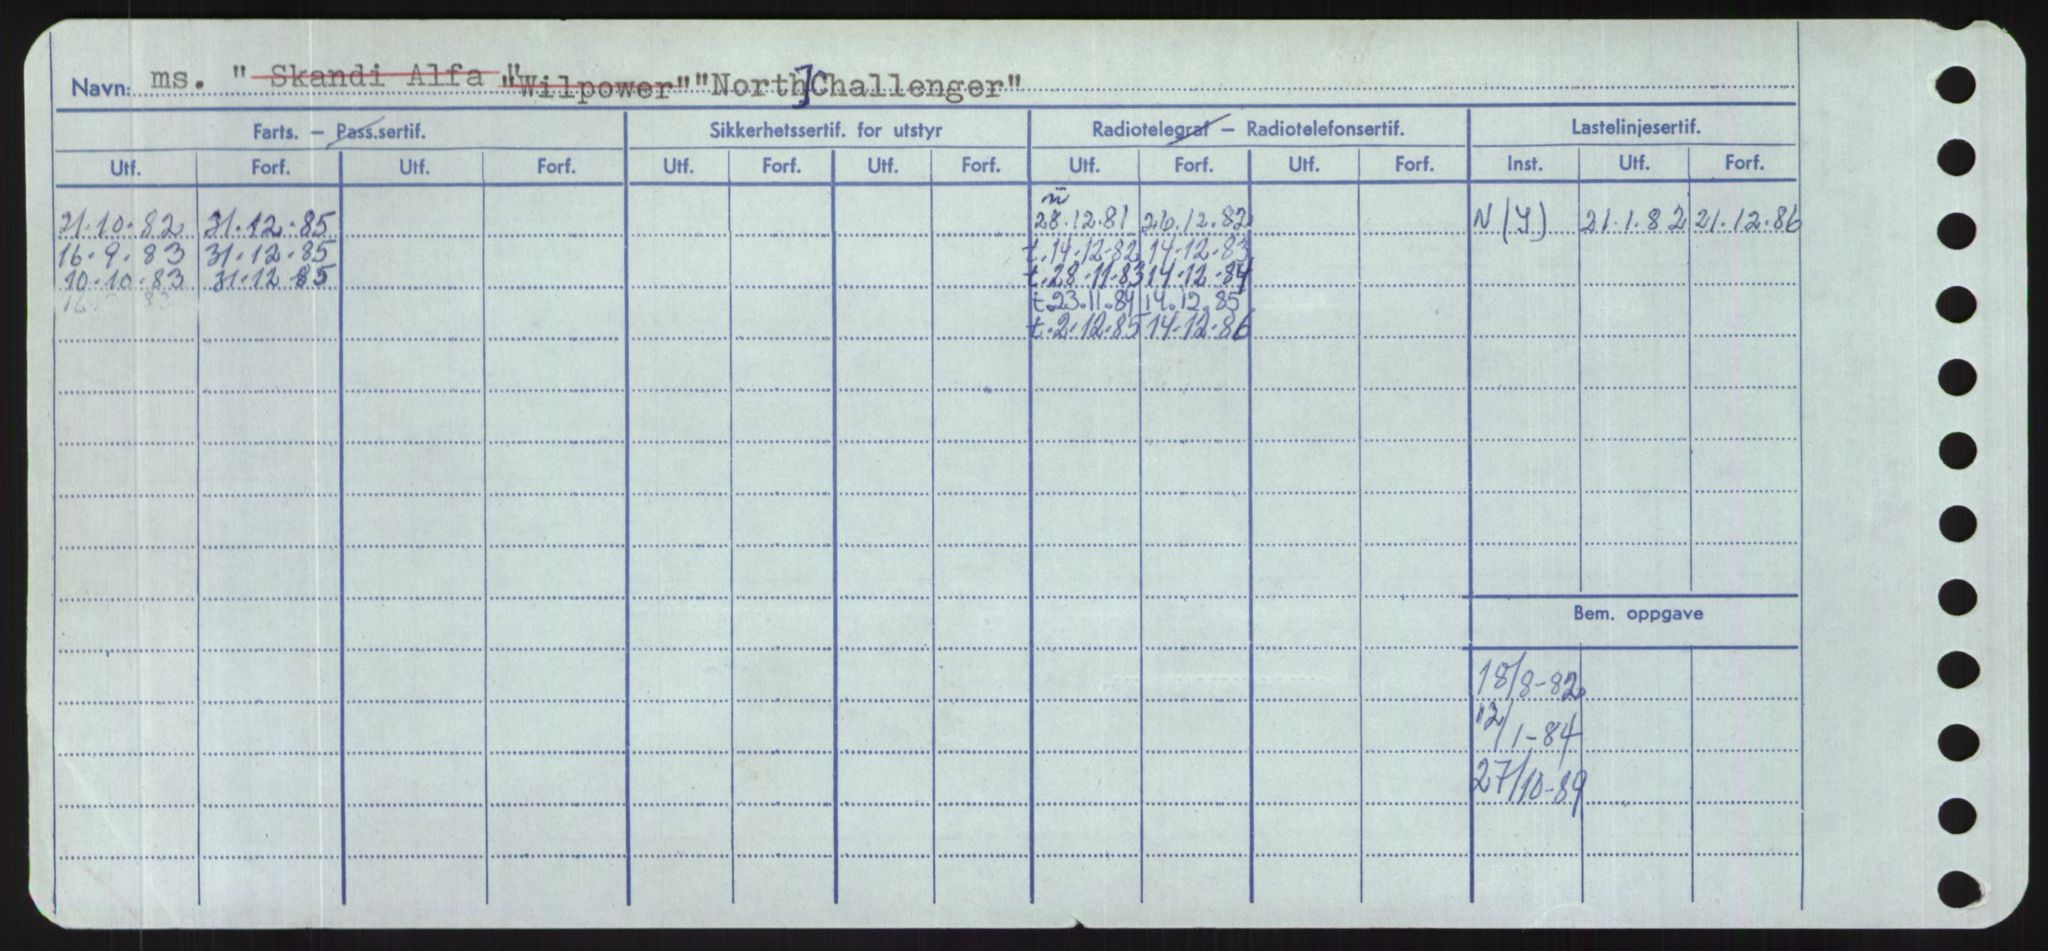 Navn: ms. "Skandi Alfa" "Wilpower" "North Challenger"
Farts. – Pass.sertif. Sikkerhetssertif. for utstyr Radiotelegraf – Radiotelefonsertif. Lastelinjesertif.
Utf. Forf. Utf. Forf. Utf. Forf. Utf. Forf. Utf. Forf. Utf. Forf. Inst. Utf. Forf.
21.10.82 31.12.85 28.12.81 26.12.82 N (Y.) 21.1.82 21.12.86
16.9.83 31.12.85 t.14.12.82 14.12.83
10.10.83 31.12.85 t.28.11.83 14.12.84
t.23.11.84 14.12.85
t.2.12.85 14.12.86
Bem. oppgave
18/8-82
12/1-84
27/10-89